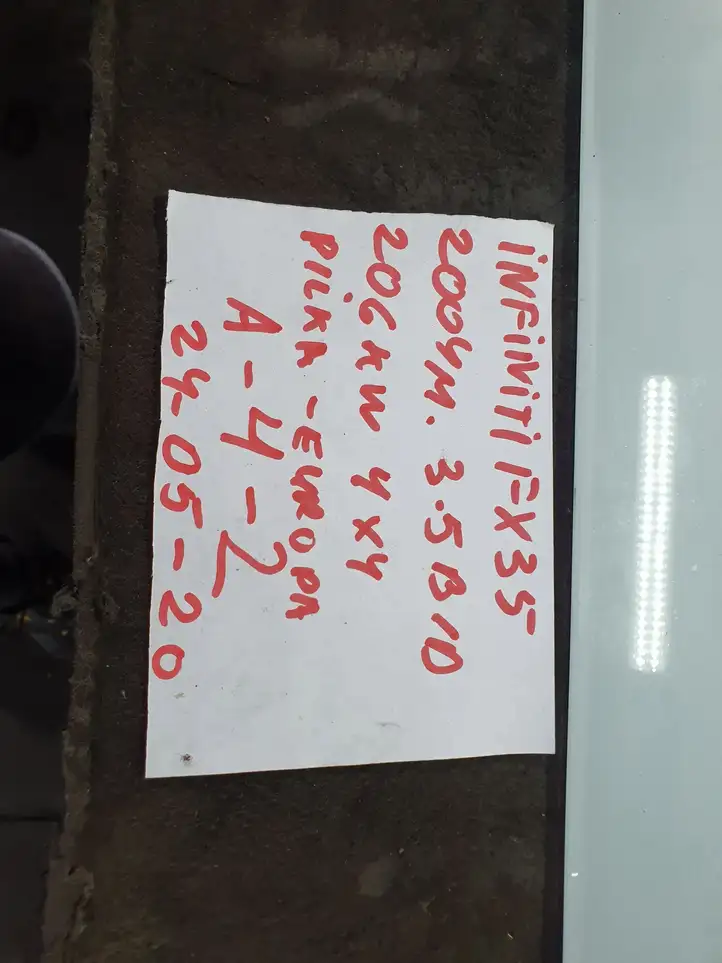 iNFiNiTi FX35
2004M. 3.5 B/D
206 KW 4X4
PILKA - EUROPA
A-4-2
24-05-20